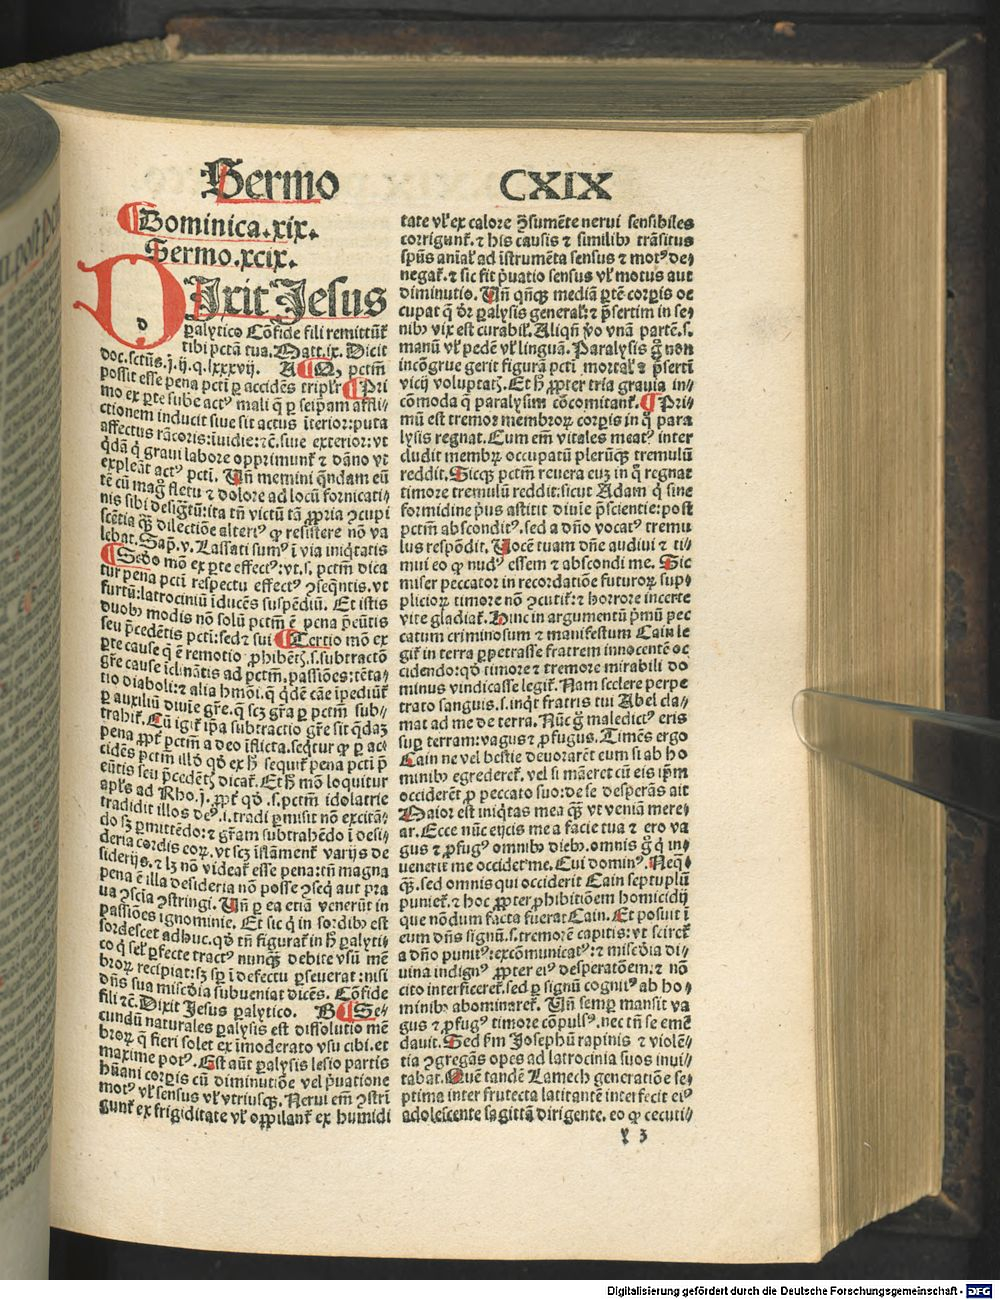 Sermo CXIX
Dominica.xix.
Sermo.xcix.
DIxit Jesus
ꝑalytico Cōfide fili remittūt᷑
tibi pctā tua. Matt.ix. Dicit
doc.sctūs.j.ij.q.lxxxvij. A Q, pctm̄
possit esse pena pcti ꝑ accidēs triplr̄ Pri
mo ex ꝑte sube actꝰ mali q̄ ꝑ seipam afflic
ctionem inducit siue sit actus īterior:puta
affectus rācoris:īuidie:⁊c̄.siue exterior:vt
q̄dā q̄ graui labore opprimunt᷑ ⁊ dāno vt
expleāt actꝰ pcti. Vn̄ memini q̄ndam eū
tē cū mag̊ fletu ⁊ dolore ad locū fornicati⸗
nis sibi desig̃tū:ita tn̄ victū tā ꝓpria ꝯcupi
scētia q̄ꝫ dilectiōe alteriꝰ ꝙ resistere nō va
lebat. Sap̄.v. Lassati sumꝰ ī via iniq̄tatis
Scd̄o mō ex ꝑte effectꝰ:vt.s. pctm̄ dica
tur pena pcti respectu effectꝰ ꝯseq̄ntis.vt
furtū:latrociniū īducēs suspēdiū. Et istis
duobꝰ modis nō solū pctm̄ ē pena p̄eūtis
seu p̄cedētis pcti:sed ⁊ sui Tertio mō ex
ꝑte cause q̄ ē remotio ꝓhibētꝭ.s.subtractō
gr̄e cause īclināntis ad pctm̄.passiōes:tēta⸗
tio diaboli:⁊ alia hmōi.q̄ q̄dē cāe īpediūt᷑
ꝑ auxiliū diuīe gr̄e.q̄ scꝫ gr̄a ꝑ pctm̄ sub⸗
trahit᷑. Cū igit᷑ ip̄a subtractio gr̄e sit q̄daꝫ
pena ꝓpt᷑ pctm̄ a deo īflicta.seq̄tur ꝙ ꝑ acc
cidēs pctm̄ illd̓ qd̓ ex h̄ sequit᷑ pena pcti p̄
eūtis seu p̄cedētꝭ dicat᷑. Et h̄ mō loquitur
apl̄s ad Rho.j. ꝓpt᷑ qd̓ .s.pctm̄ idolatrie
tradidit illos deꝰ.i.tradi ꝑmisit nō excitā⸗
do sꝫ ꝑmittēdo:⁊ gr̄am subtrahēdo ī desi⸗
deria cordis coꝝ.vt scꝫ īflāment᷑ varijs de
siderijs.⁊ lꝫ nō videat᷑ esse pena:tn̄ magna
pena ē illa desideria nō posse ꝯseq̄ aut pra
ua ꝯscia ꝯstringi. Vn̄ ꝑ ea etiā venerūt in
passiōes ignominie. Et sic q̄ in sordibꝰ est
sordescet adhuc.qd̓ tn̄ figurat᷑ in h̄ ꝑalyti⸗
co q̄ sel᷑ ꝑfecte tractꝰ nunq̄ꝫ debite vsū mē
broꝝ recipiat:sꝫ sꝑ ī defectu ꝑseuerat:nisi
dn̄s sua mīscdīa subueniat dicēs. Cōfide
fili ⁊c̄. Dixit Jesus ꝑalytico. B Se⸗
cundū naturales ꝑalysis est dissolutio mē
broꝝ q̄ fieri solet ex īmoderato vsu cibi.et
maxime potꝰ. Est aūt ꝑalysis lesio partis
hūani corꝑis cū diminutiōe vel p̄uatione
motꝰ vl̓ sensus vl̓ vtriusqꝫ. Nerui em̄ ꝯstrī
gunt᷑ ex frigiditate vl̓ oppilant᷑ ex humidi
tate vl̓ ex calore ꝯsumēte nerui sensibiles
corrigunt᷑.⁊ his causis ⁊ similibꝰ trāsitus
spūs aniāl᷑ ad īstrumēta sensus ⁊ motꝰ de⸗
negat᷑.⁊ sic fit p̄uatio sensus vl̓ motus aut
diminutio. Vn̄ qn̄qꝫ mediā ꝑtē corꝑis oc
cupat q̄ dr̄ ꝑalysis general᷑:⁊ p̄sertim in se⸗
nibꝰ vix est curabil᷑. Aliqn̄ v̊o vnā partē.s.
manū vl̓ pedē vl̓ linguā. Paralysis g̊ non
incōgrue gerit figurā pcti mortal᷑ ⁊ p̄serti
vicij voluptatꝭ. Et h̄ ꝓpter tria grauia in⸗
cōmoda q̄ paralysim cōcomitant᷑. Pri⸗
mū est tremor membroꝝ corꝑis in q̊ para
lysis regnat. Cum em̄ vitales meatꝰ inter
cludit membꝝ occupatū plerūqꝫ tremulū
reddit. Sicqꝫ pctm̄ reuera euꝫ in q̊ regnat
timore tremulū reddit:sicut Adam q̄ sine
formidine p̄us astitit diuīe p̄scientie:post
pctm̄ abscondītꝰ.sed a dn̄o vocatꝰ tremu
lus respōdit. Vocē tuam dn̄e audiui ⁊ ti⸗
mui eo ꝙ nudꝰ essem ⁊ abscondi me. Sic
miser peccator in recordatiōe futuroꝝ sup⸗
plicioꝝ timore nō ꝯcutit᷑:⁊ horrore incerte
vite gladiat᷑. Hinc in argumentū p̄mū pec
catum criminosum ⁊ manifestum Cain le
git᷑ in terra ꝑpetrasse fratrem innocentē oc
cidendo:qd̓ timore ⁊ tremore mirabili do
minus vindicasse legit᷑. Nam scelere perpe
trato sanguis.s.inq̄t fratris tui Abel cla⸗
mat ad me de terra. Nūc g̊ maledictꝰ eris
suꝑ terram:vagus ⁊ ꝓfugus. Timēs ergo
Cain ne vel bestie deuorarēt eum si ab ho
minibꝰ egrederet᷑.vel si māeret cū eis ip̄m
occiderēt ꝓ peccato suo:de se desperās ait
Maior est iniq̄tas mea q̄ꝫ vt veniā mere⸗
ar. Ecce nūc eijcis me a facie tua ⁊ ero va
gus ⁊ ꝓfugꝰ omnibꝰ diebꝰ.omnis g̊ q̄ in⸗
uenerit me occidet me. Cui dominꝰ. Neq̄
q̄ꝫ.sed omnis qui occiderit Cain septuplū
puniet᷑.⁊ hoc ꝓpter ꝓhibitiōem homicidij
que nōdum facta fuerat Cain. Et posuit ī
eum dn̄s signū.s.tremorē capitis:vt sciret᷑
a dn̄o punitꝰ:excōmunicatꝰ:⁊ miscdīa di⸗
uina indignꝰ ꝓpter eiꝰ desperatōem:⁊ nō
cito interficeret᷑.sed ꝑ signū cognitꝰ ab ho⸗
minibꝰ abominaret᷑. Vn̄ semꝑ mansit va
gus ⁊ ꝓfugꝰ timore cōpulsꝰ.nec tn̄ se emē
dauit. Sed fm̄ Josephū rapinis ⁊ violē⸗
tia ꝯgregās opes ad latrocinia suos inui⸗
tabat. Quē tandē Lamech generatiōe se⸗
ptima inter frutecta latitantē interfecit eiꝰ
adolescente sagittā dirigente.eo ꝙ cecuti⸗
y 3
Digitalisierung gefördert durch die Deutsche Forschungsgemeinschaft - DFG